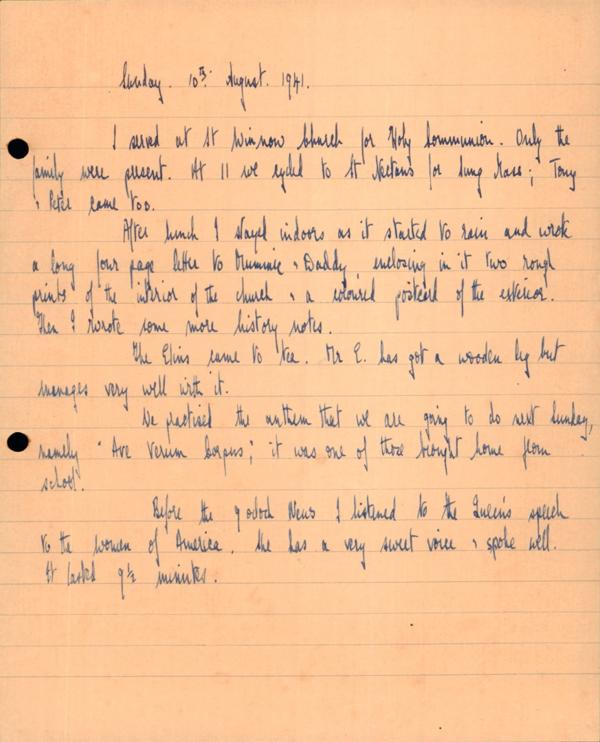 Sunday. 10th. August. 1941.
I served at St Winnow Church for Holy Communion. Only the
family were present. At 11 we cycled to St Nectans for Sung Mass; Tony
& Peter came too.
After lunch I stayed indoors as it started to rain and wrote
a long four page letter to Mummie & Daddy, enclosing in it two rough
prints of the interior of the church & a coloured postcard of the exterior.
Then I wrote some more history notes.
The came to tea. Mr E. has got a wooden leg but
manages very well with it.
We practised the anthem that we are going to do next Sunday,
namely "Ave Verum Corpus"; it was one of those brought home from
school.
Before the 9 oclock News I listened to the Queen's speech
to the women of America. She has a very sweet voice & spoke well.
It lasted 9½ minutes.